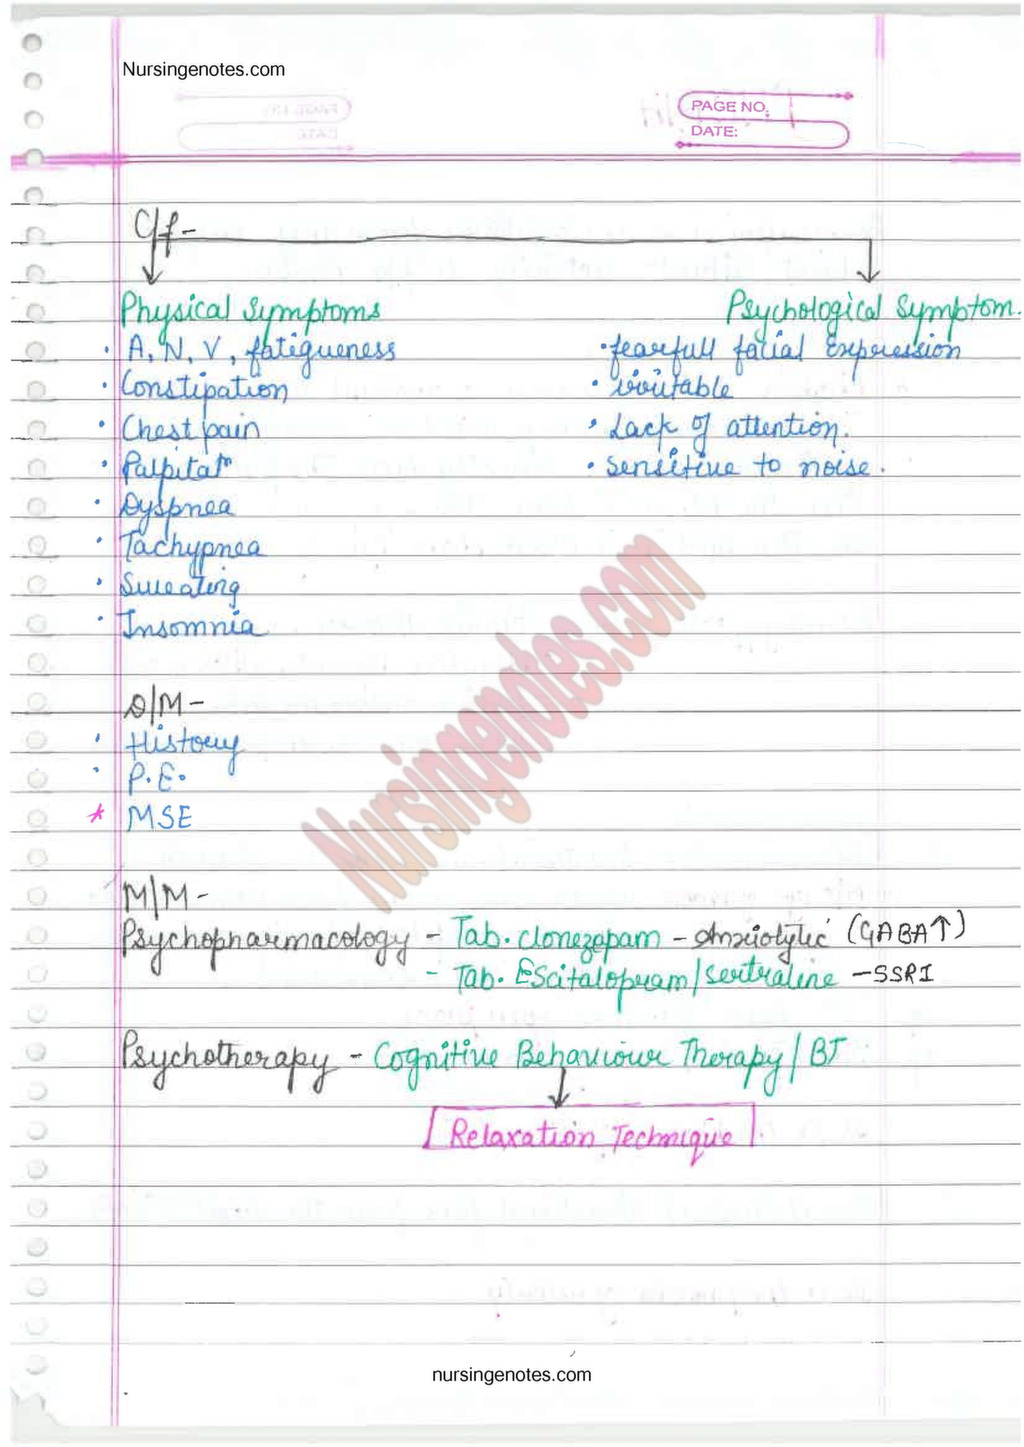 Nursingenotes.com
PAGE NO.
DATE:
C/f-
Physical Symptoms
Psychological Symptom.
• A, N, V, fatigueness
• fearfull facial Expression
• Constipation
• irritable
• Chest pain
• Lack of attention.
• Palpitatn
• sensitive to noise.
• Dyspnea
• Tachypnea
• Sweating
• Insomnia
Nursingenotes.com
D/M-
• History
• P.E.
* MSE
M/M-
Psychopharmacology - Tab. clonezapam - Anxiolytic (GABA↑)
- Tab. EScitalopram/sertraline - SSRI
Psychotherapy - Cognitive Behaviour Therapy/BT
Relaxation Technique
nursingenotes.com